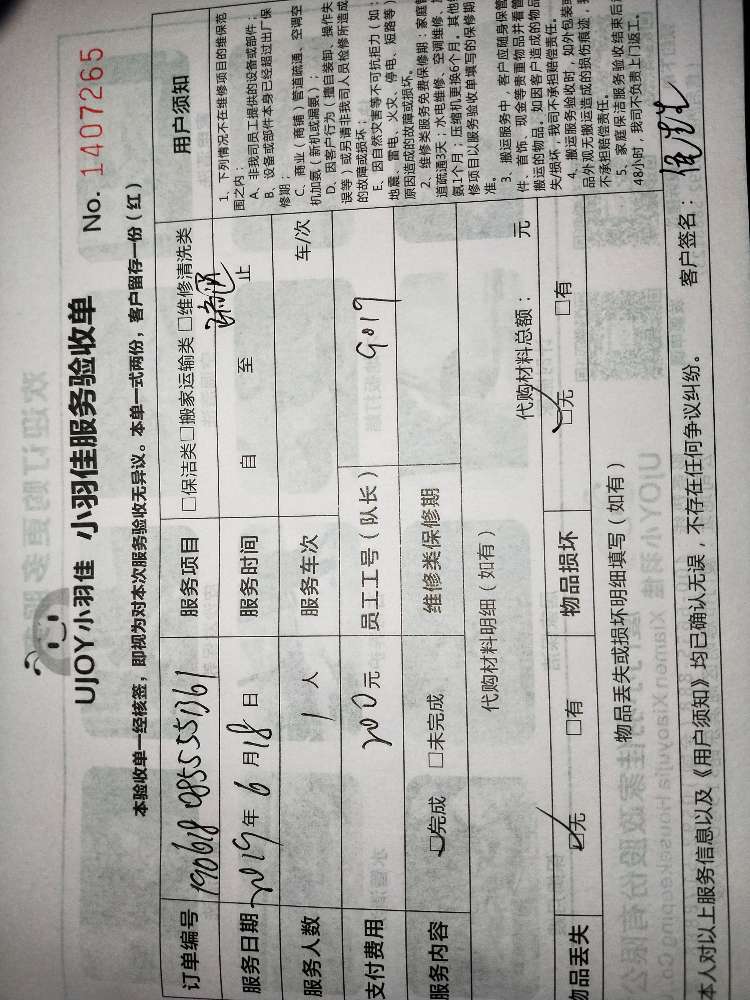 UJOY小羽佳 小羽佳服务验收单 No. 1407265
本验收单一经核签，即视为对本次服务验收无异议。本单一式两份，客户留存一份（红）
订单编号 服务项目 □保洁类□搬家运输类 □维修清洗类 疏通
服务日期 2019年 6月18日 服务时间 自 至 止
服务人数 1 人 服务车次 车/次
支付费用 200元 员工工号（队长） 9019
服务内容 □完成 □未完成 维修类保修期
代购材料明细（如有） 代购材料总额： 元
物品丢失 □无 □有 物品损坏 □无 □有
物品丢失或损坏明细填写（如有）
用户须知
1、下列情况不在维修项目的维保范
围之内：
A、非我司员工提供的设备或部件；
B、设备或部件本身已经超过出厂保
修期；
C、商业（商铺）管道疏通、空调空
机加氨（新机或漏氨）；
D、因客户行为（擅自装卸、操作失
误等）或另请非我司人员检修所造成
的故障或损坏；
E、因自然灾害等不可抗拒力（如：
地震、雷电、火灾、停电、短路等）
原因造成的故障或损坏。
2、维修类服务免费保修期：家庭管
道疏通3天；水电维修、空调维修、
氨1个月；压缩机更换6个月。其他
修项目以服务验收单填写的保修期
准。
3、搬运服务中，客户应随身保管
件、首饰、现金等贵重物品并看管
搬运的物品。如因客户造成的物品
失/损坏，我司不承担赔偿责任。
4、搬运服务验收时，如外包装或
品外观无搬运造成的损伤痕迹，我
不承担赔偿责任。
5、家庭保洁服务验收结束后
48小时，我司不负责上门返工。
本人对以上服务信息以及《用户须知》均已确认无误，不存在任何争议纠纷。 客户签名：